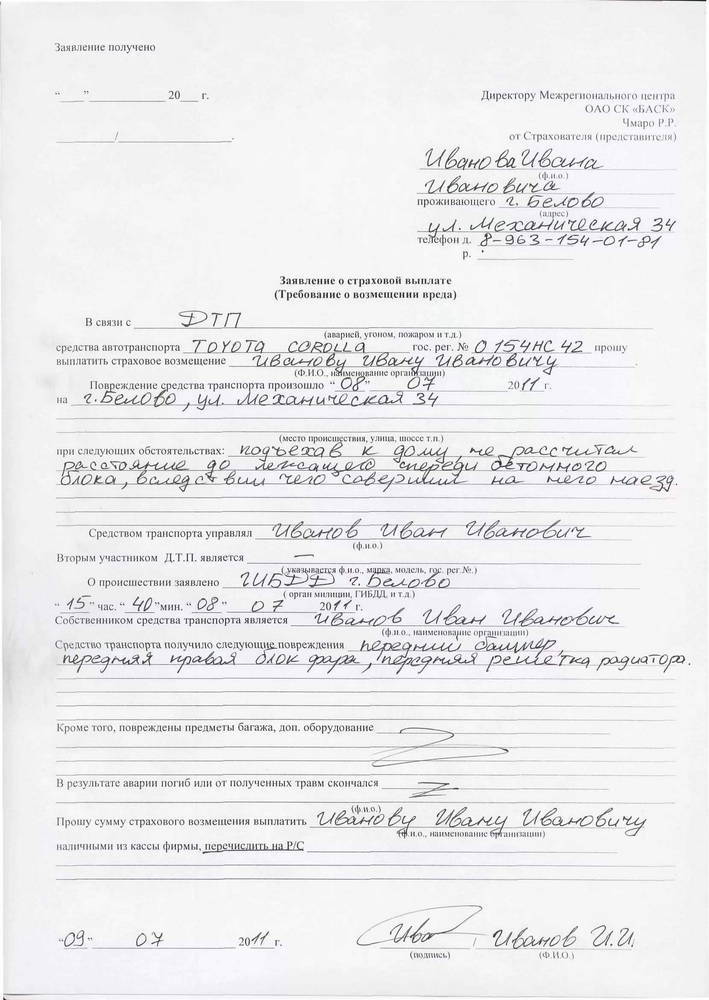 Заявление получено
“____”____________ 20___ г.
__________/__________________.
Директору Межрегионального центра
ОАО СК «БАСК»
Чмаро Р.Р.
от Страхователя (представителя)
Иванова Ивана
(ф.и.о.)
Ивановича
проживающего г. Белово
(адрес)
ул. Механическая 34
телефон д. 8-963-154-01-81
р.
Заявление о страховой выплате
(Требование о возмещении вреда)
В связи с ДТП
(аварией, угоном, пожаром и т.д.)
средства автотранспорта TOYOTA COROLLA гос. рег. № О 154 НС 42 прошу
выплатить страховое возмещение Иванову Ивану Ивановичу
(Ф.И.О., наименование организации)
Повреждение средства транспорта произошло “08” 07 2011 г.
на г. Белово, ул. Механическая 34
(место происшествия, улица, шоссе т.п.)
при следующих обстоятельствах: подъехав к дому, не рассчитал
расстояние до лежащего спереди бетонного
блока, вследствии чего совершил на него наезд.
Средством транспорта управлял Иванов Иван Иванович
(ф.и.о.)
Вторым участником Д.Т.П. является —
( указывается ф.и.о., марка, модель, гос. рег.№.)
О происшествии заявлено ГИБДД г. Белово
( орган милиции, ГИБДД, и т.д.)
“15” час. “40” мин. “08” 07 2011 г.
Собственником средства транспорта является Иванов Иван Иванович
(ф.и.о., наименование организации)
Средство транспорта получило следующие повреждения передний бампер,
передняя правая блок фара, передняя решетка радиатора.
Кроме того, повреждены предметы багажа, доп. оборудование
В результате аварии погиб или от полученных травм скончался
(ф.и.о.)
Прошу сумму страхового возмещения выплатить Иванову Ивану Ивановичу
(ф.и.о., наименование организации)
наличными из кассы фирмы, перечислить на Р/С
“09” 07 2011 г. Ива / Иванов И.И.
(подпись) (Ф.И.О.)